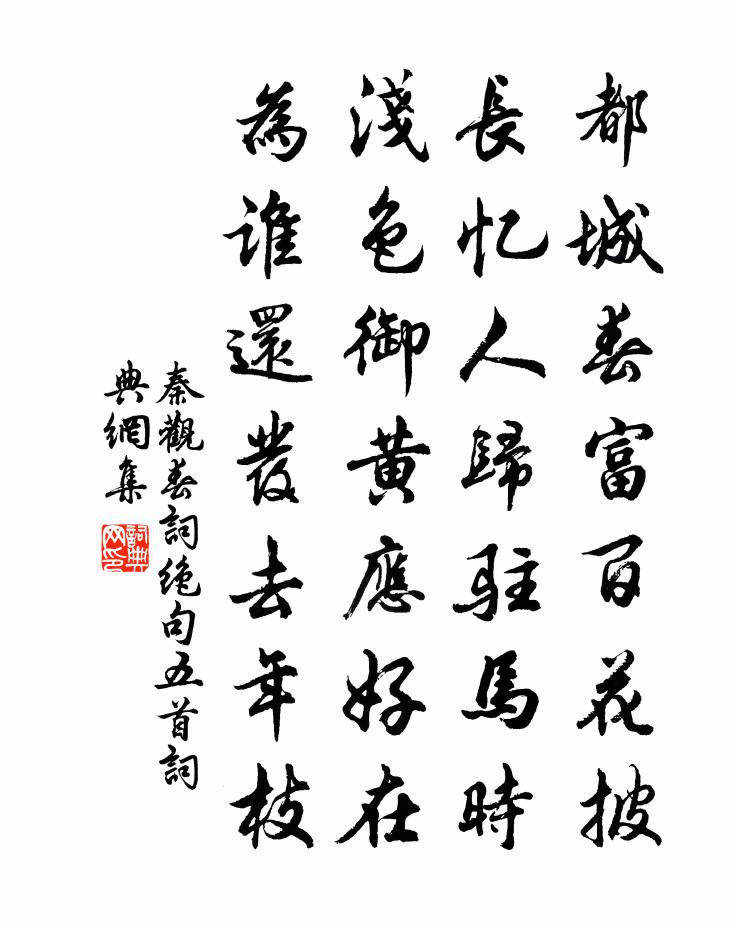 都城春富百花披
長忆人歸駐馬時
淺色御黃應好在
為誰還發去年枝
秦觀春詞絶句五首詞
典網集
詞典
网印